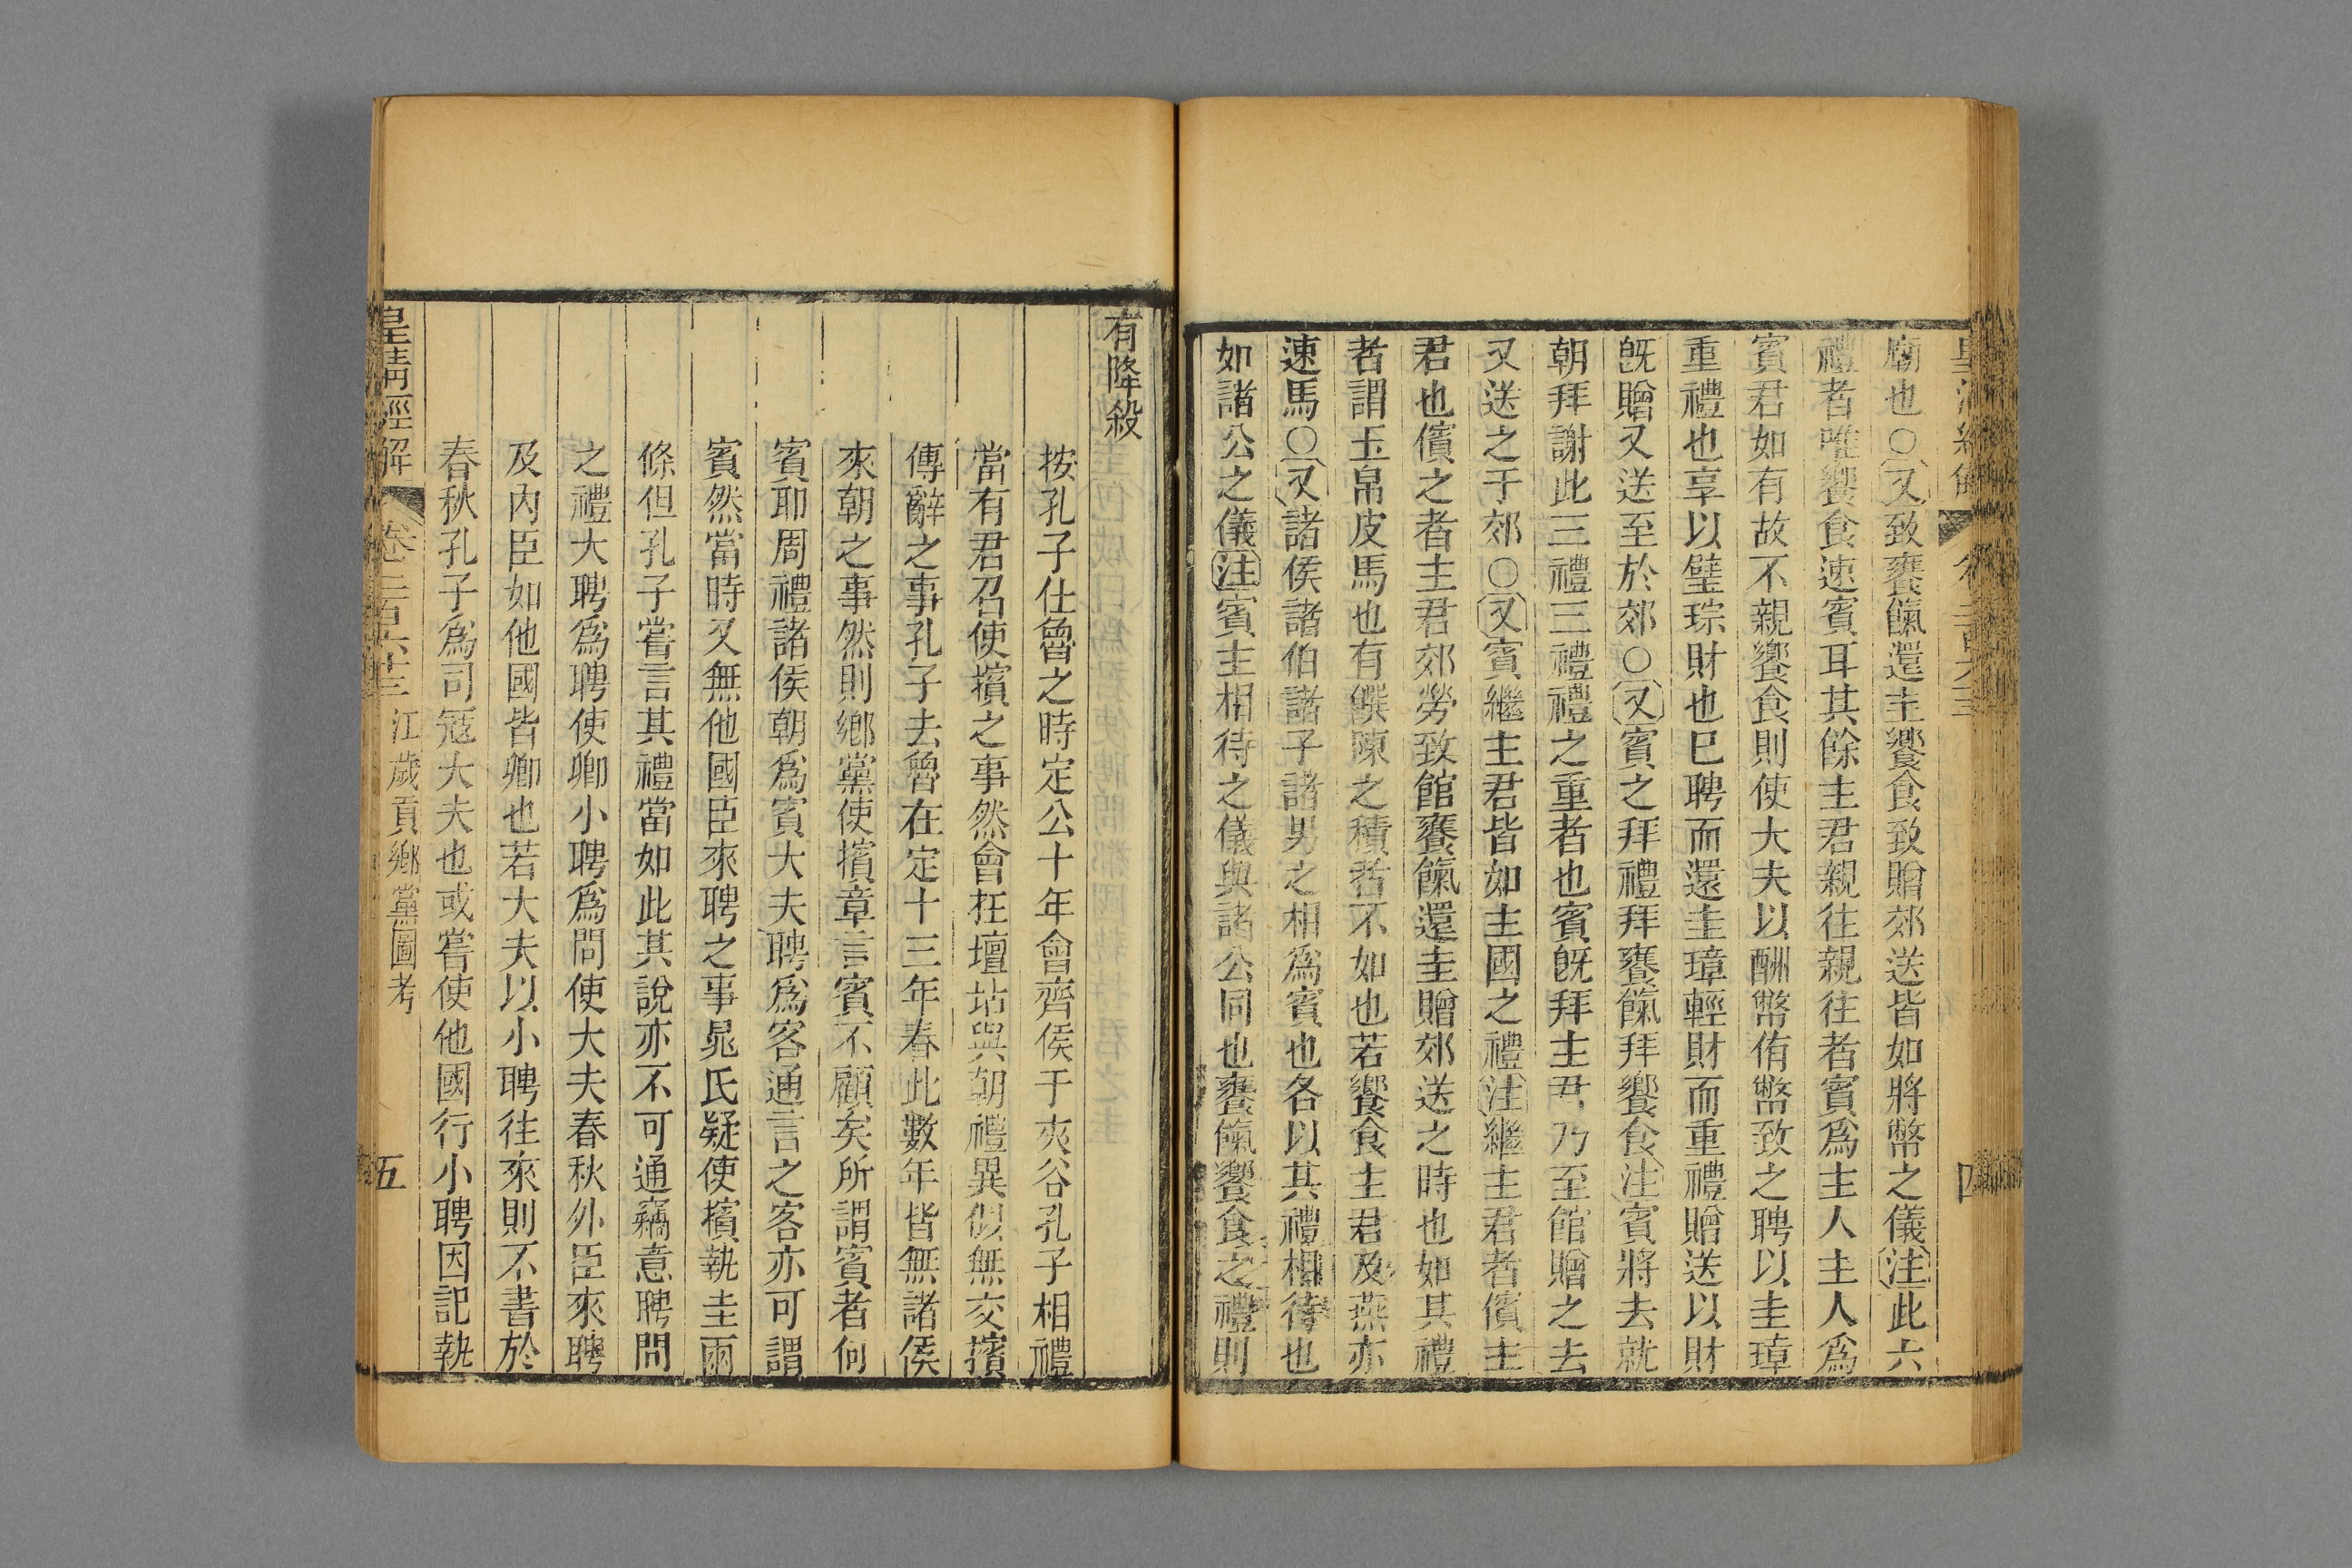 廟也○又致饔餼還圭饗食致贈郊送皆如將幣之儀注此六
禮者唯饗食速賓耳其餘主君親往親往者賓爲主人主人爲
賓君如有故不親饗食則使大夫以酬幣侑幣致之聘以圭璋
重禮也享以璧琮財也已聘而還圭璋輕財而重禮贈送以財
旣贈又送至於郊○又賓之拜禮拜饔餼拜饗食注賓將去就
朝拜謝此三禮三禮禮之重者也賓旣拜主君乃至館贈之去
又送之于郊○又賓繼主君皆如主國之禮注繼主君者儐主
君也儐之者主君郊勞致館饔餼還圭贈郊送之時也如其禮
者謂玉帛皮馬也有饌陳之積者不如也若饗食主君及燕亦
速焉○又諸侯諸伯諸子諸男之相爲賓也各以其禮相待也
如諸公之儀注賓主相待之儀與諸公同也饔餼饗食之禮則
有降殺
按孔子仕魯之時定公十年會齊侯于夾谷孔子相禮
當有君召使擯之事然會在壇坫與朝禮異似無交擯
傳辭之事孔子去魯在定十三年春此數年皆無諸侯
來朝之事然則鄉黨使擯章言賓不顧矣所謂賓者何
賓耶周禮諸侯朝爲賓大夫聘爲客通言之客亦可謂
賓然當時又無他國臣來聘之事晁氏疑使擯執圭兩
條但孔子嘗言其禮當如此其說亦不可通竊意聘問
之禮大聘爲聘使卿小聘爲問使大夫春秋外臣來聘
及內臣如他國皆卿也若大夫以小聘往來則不書於
春秋孔子爲司寇大夫也或嘗使他國行小聘因記執
皇淸經解 卷二百六十三 江歲貢鄉黨圖考 五